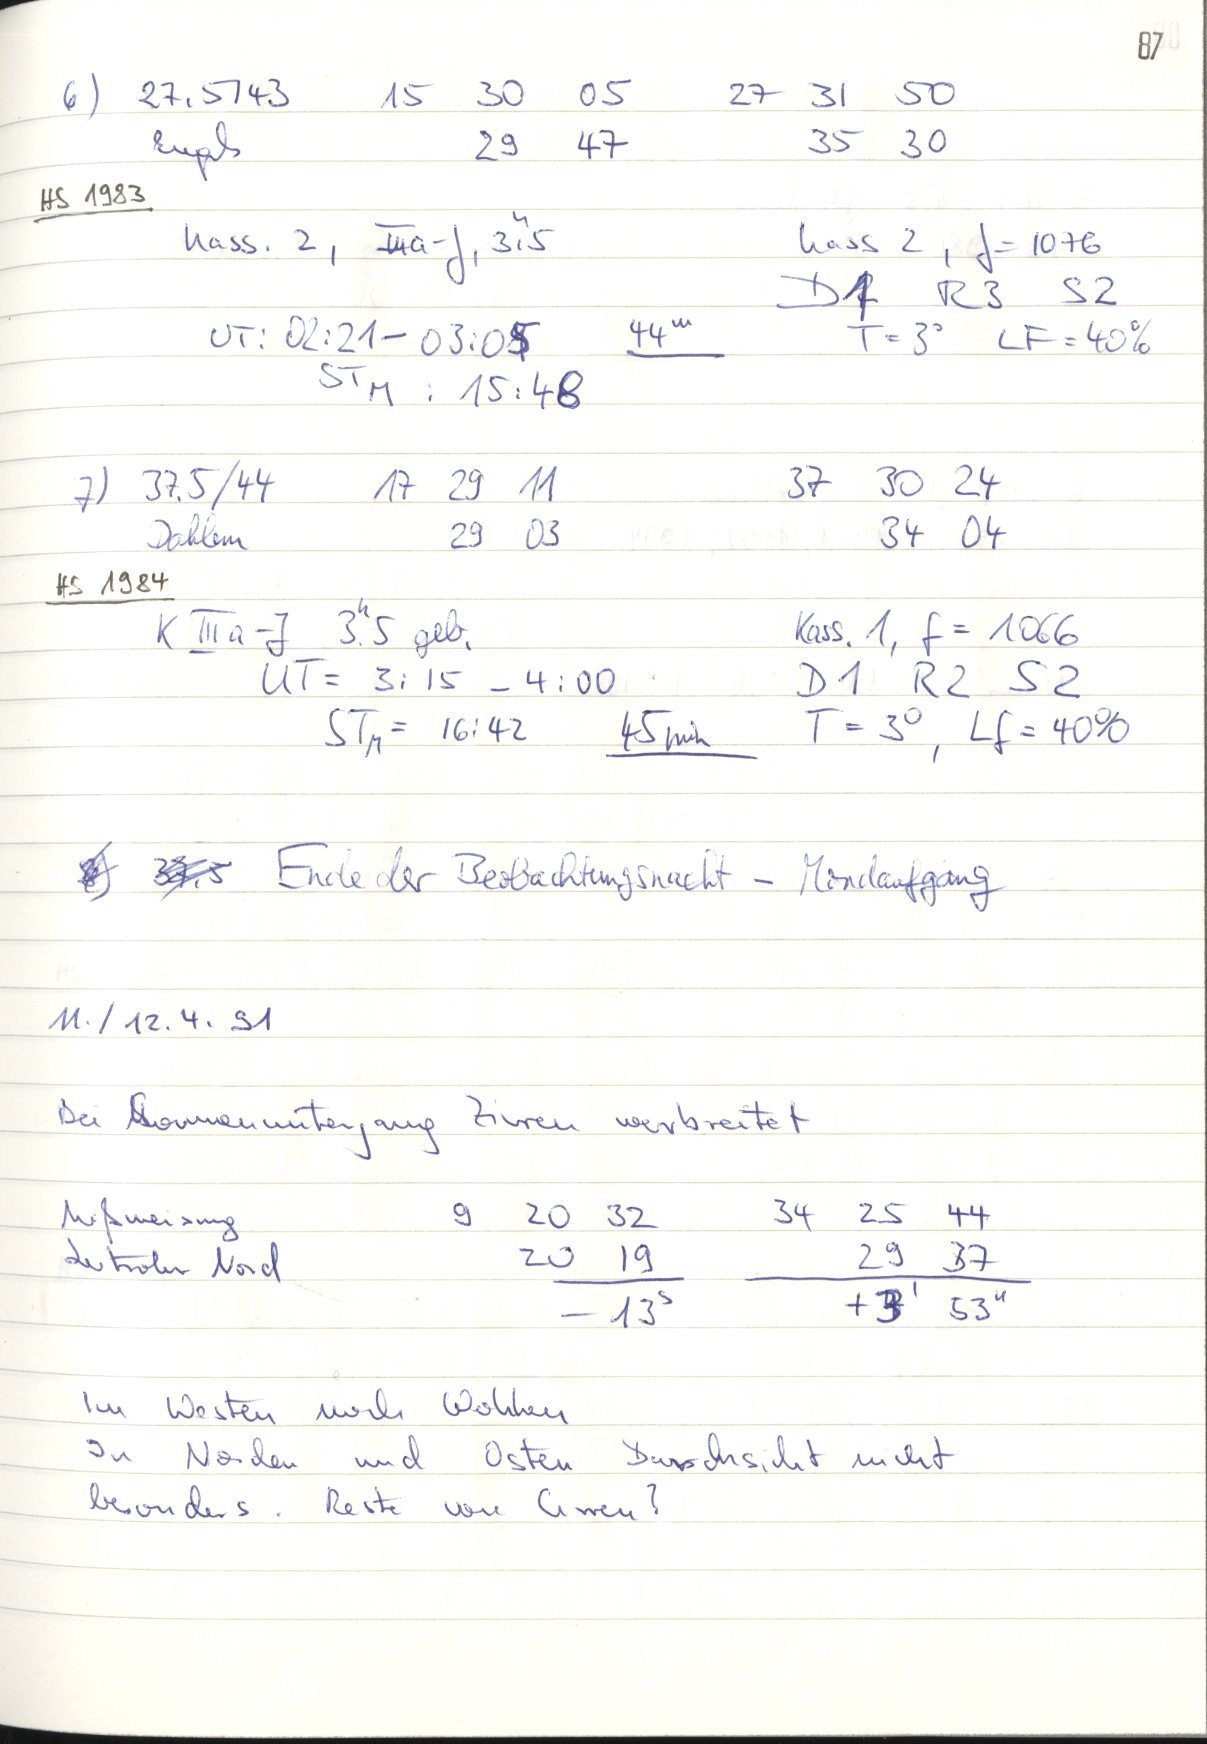 87
6) 27.5/43 15 30 05 27 31 50
Engels 29 47 35 30
HS 1983
Kass. 2, IIIa-J, 3h.5 Kass 2, f = 1076
D1 R3 S2
UT: 02:21 – 03:05 44m T = 3° LF = 40%
STM : 15:48
7) 37.5/44 17 29 11 37 30 24
Dahlem 29 03 34 04
HS 1984
K IIIa-J 3h.5 geb. Kass. 1, f = 1066
UT = 3:15 – 4:00 D1 R2 S2
STM = 16:42 45 min T = 3°, Lf = 40%
Ende der Beobachtungsnacht – Mondaufgang
11./12.4.91
Bei Sonnenuntergang Zirren verbreitet
Mißweisung 9 20 32 34 25 44
Zentraler Nord 20 19 29 37
– 13s +3' 53"
Im Westen noch Wolken
In Norden und Osten Durchsicht nicht
besonders. Reste von Cirren?